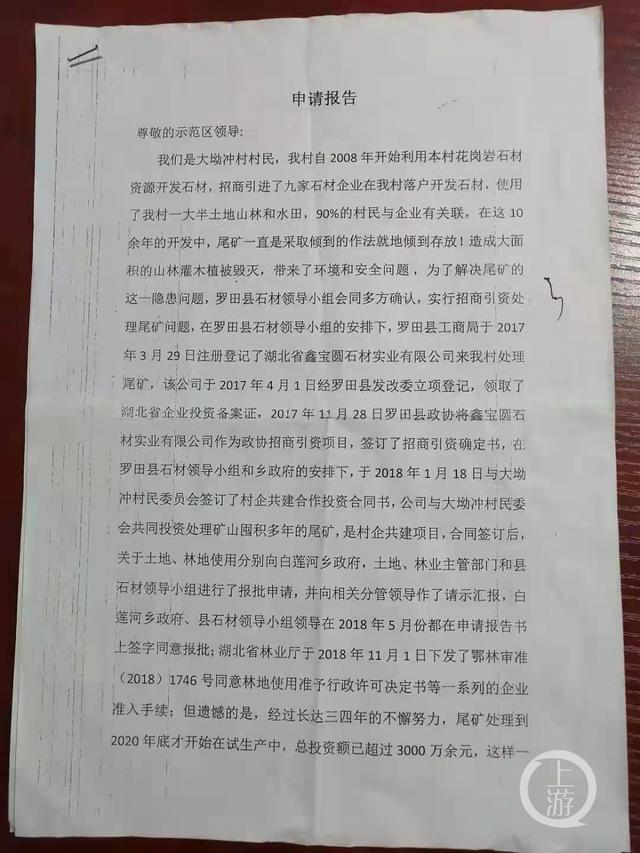 申请报告
尊敬的示范区领导:
我们是大坳冲村村民，我村自2008年开始利用本村花岗岩石材
资源开发石材，招商引进了九家石材企业在我村落户开发石材，使用
了我村一大半土地山林和水田，90%的村民与企业有关联，在这10
余年的开发中，尾矿一直是采取倾到的作法就地倾到存放！造成大面
积的山林灌木植被毁灭，带来了环境和安全问题，为了解决尾矿的
这一隐患问题，罗田县石材领导小组会同多方确认，实行招商引资处
理尾矿问题，在罗田县石材领导小组的安排下，罗田县工商局于2017
年3月29日注册登记了湖北省鑫宝圆石材实业有限公司来我村处理
尾矿，该公司于2017年4月1日经罗田县发改委立项登记，领取了
湖北省企业投资备案证，2017年11月28日罗田县政协将鑫宝圆石
材实业有限公司作为政协招商引资项目，签订了招商引资确定书，在
罗田县石材领导小组和乡政府的安排下，于2018年1月18日与大坳
冲村民委员会签订了村企共建合作投资合同书，公司与大坳冲村民委
会共同投资处理矿山囤积多年的尾矿，是村企共建项目，合同签订后，
关于土地、林地使用分别向白莲河乡政府，土地、林业主管部门和县
石材领导小组进行了报批申请，并向相关分管领导作了请示汇报，白
莲河乡政府、县石材领导小组领导在2018年5月份都在申请报告书
上签字同意报批；湖北省林业厅于2018年11月1日下发了鄂林审准
（2018）1746号同意林地使用准予行政许可决定书等一系列的企业
准入手续；但遗憾的是，经过长达三四年的不懈努力，尾矿处理到
2020年底才开始在试生产中，总投资额已超过3000万余元，这样一
上游